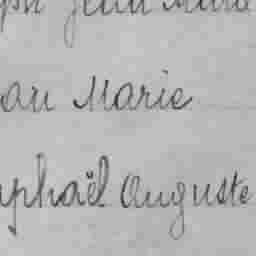 ph Jean Marie
an Marie
phaël Auguste